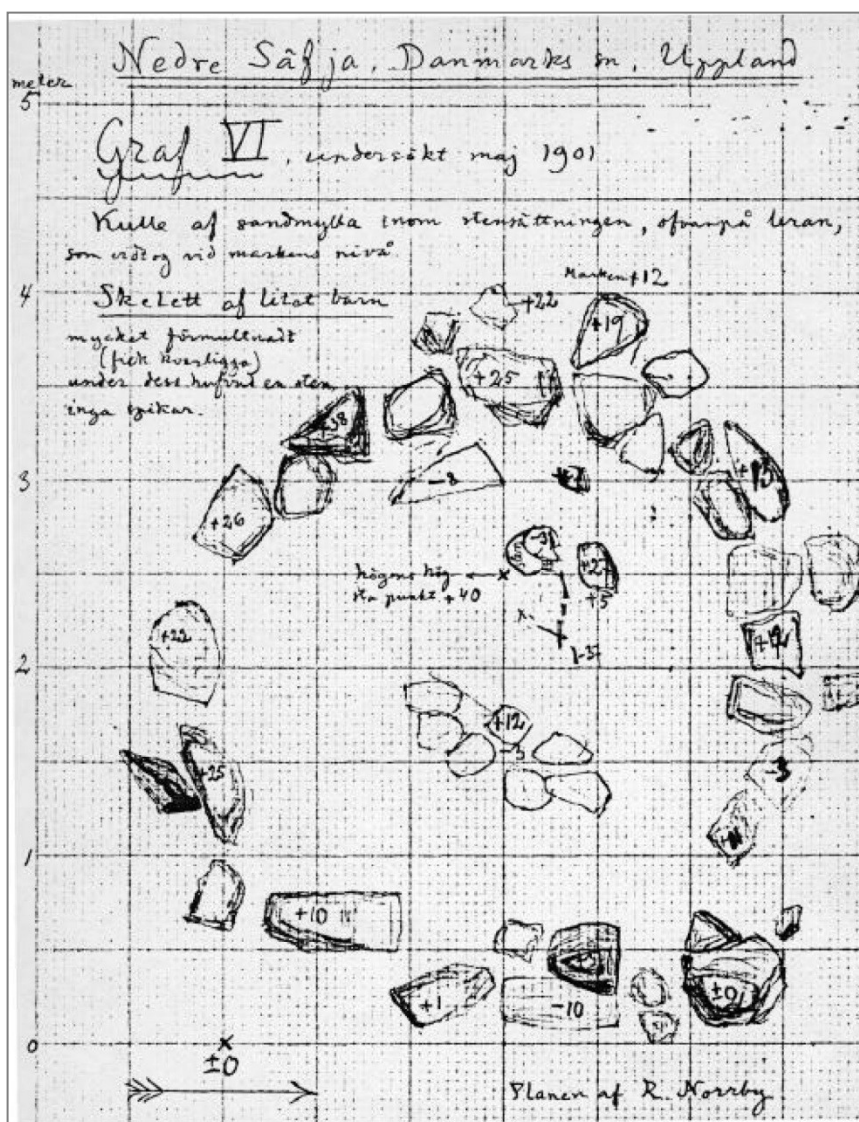 Nedre Säfja. Danmarks sn, Uppland
meter
5
Graf VI, undersökt maj 1901
Kulle af sandmylla inom stensättningen, ofvanpå leran,
som vidtog vid markens nivå.
4
Marken +12
Skelett af litet barn
+22
+19
mycket förmultnadt
(fick kvarligga)
+25
under dess hufvud en sten
inga spikar.
+38
3
-8
+13
+26
högens hög
sta punkt +40
+2
+5
+22
+12
2
+12
-3
+25
-3
1
+10
+1
-10
±0
0
±0
Planen af R. Norrby